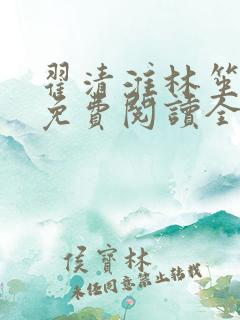 翟清淮林笙
免費閱讀全
侯寶林
未经同意禁止转载